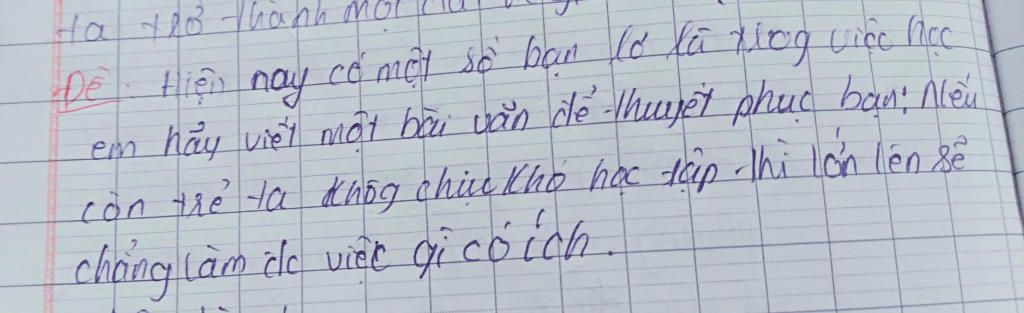 ta trở thành một
Đề: Hiện nay có một số bạn lơ là trog việc học
em hãy viết một bài văn để thuyết phục bạn: Nếu
còn trẻ ta khôg chịu khó học tập thì lớn lên sẽ
chẳng làm đc việc gì có ích.